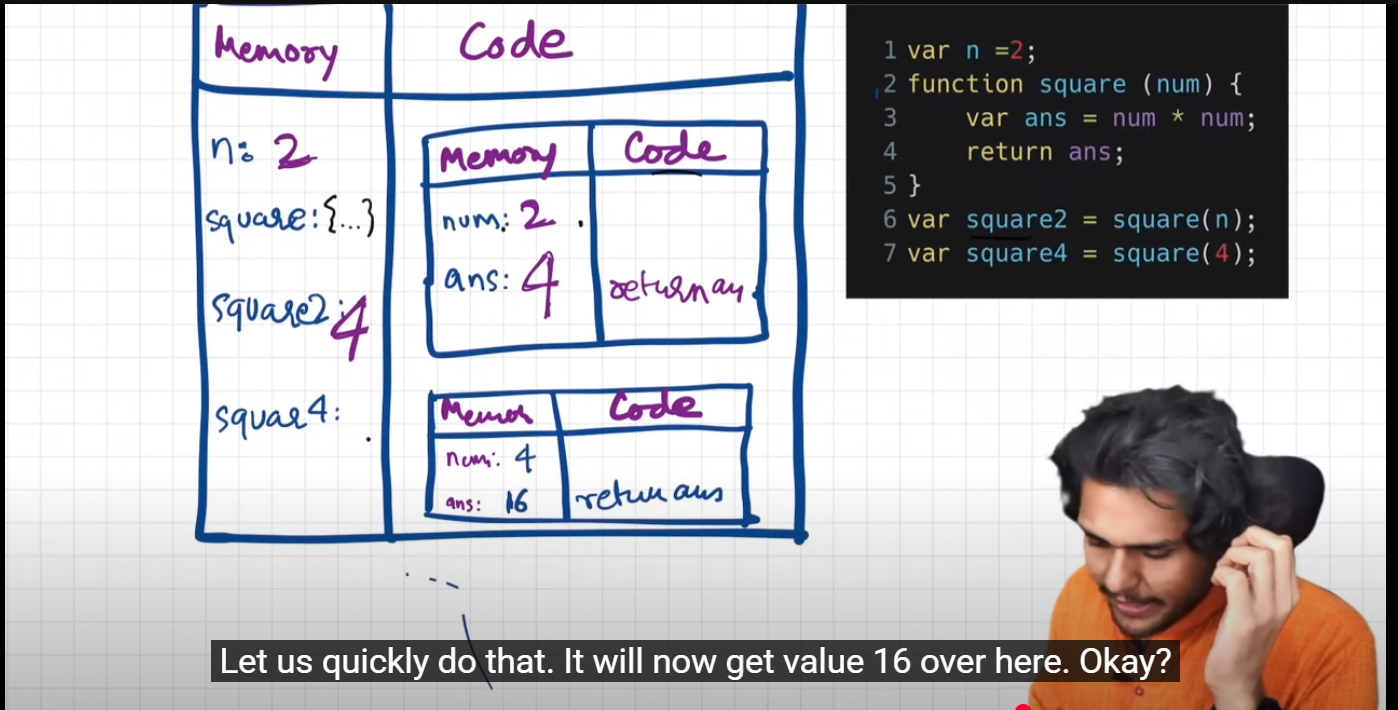 Memory
Code
n: 2
square: {...}
square2: 4
squar4:
Memory
Code
num: 2
ans: 4
return an
Memor
Code
num: 4
ans: 16
return ans
1 var n =2;
2 function square (num) {
3 var ans = num * num;
4 return ans;
5 }
6 var square2 = square(n);
7 var square4 = square(4);
Let us quickly do that. It will now get value 16 over here. Okay?